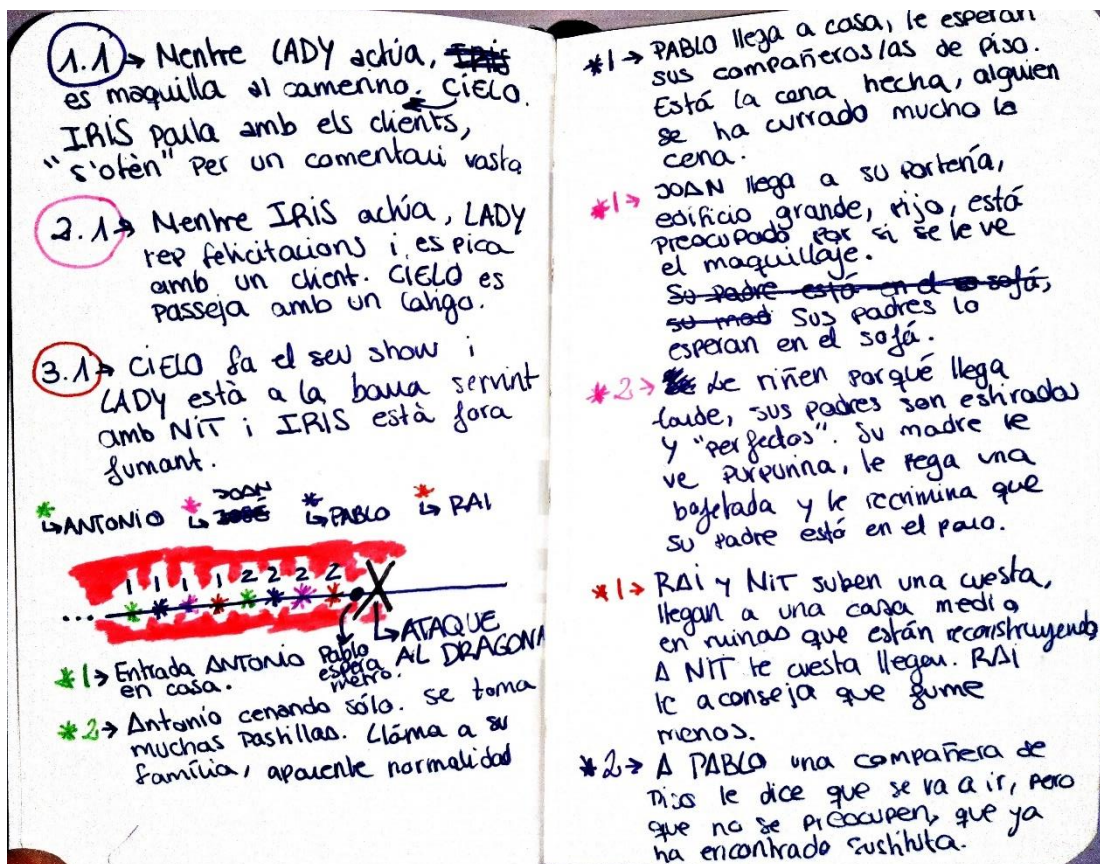 1.1 → Mentre LADY actúa, Iris
es maquilla al camerino. CIELO.
IRIS parla amb els clients,
"s'ofèn" per un comentari vasto
2.1 → Mentre IRIS actúa, LADY
rep felicitacions i es pica
amb un client. CIELO es
passeja amb un Cahgo.
3.1 → CIELO fa el seu show i
LADY està a la barra servint
amb NIT i IRIS està fora
fumant.
* ↳ ANTONIO * ↳ JOSÉ JOAN * ↳ PABLO * ↳ RAI
1 1 1 1 2 2 2 2 X
... * * * * * * * *
↳ ATAQUE
AL DRAGONA
Pablo
espera
metro.
*1 → Entrada ANTONIO
en casa.
*2 → Antonio cenando sólo. se toma
muchas pastillas. Lláma a su
família, aparente normalidad
*1 → PABLO llega a casa, le esperan
sus compañeros/as de piso.
Está la cena hecha, alguien
se ha currado mucho la
cena.
*1 → JOAN llega a su portería,
edificio grande, pijo, está
preocupado por si se le ve
el maquillaje.
Su padre está en el sofá,
su mad Sus padres lo
esperan en el sofá.
*2 → Le riñen porqué llega
tarde, sus padres son estirados
y "perfectos". Su madre le
ve purpurina, le pega una
bofetada y le recrimina que
su padre está en el paro.
*1 → RAI y NIT suben una cuesta,
llegan a una casa medio
en ruinas que están reconstruyendo
A NIT le cuesta llegar. RAI
le aconseja que fume
menos.
*2 → A PABLO una compañera de
piso le dice que se va a ir, pero
que no se preocupen, que ya
ha encontrado sustituta.